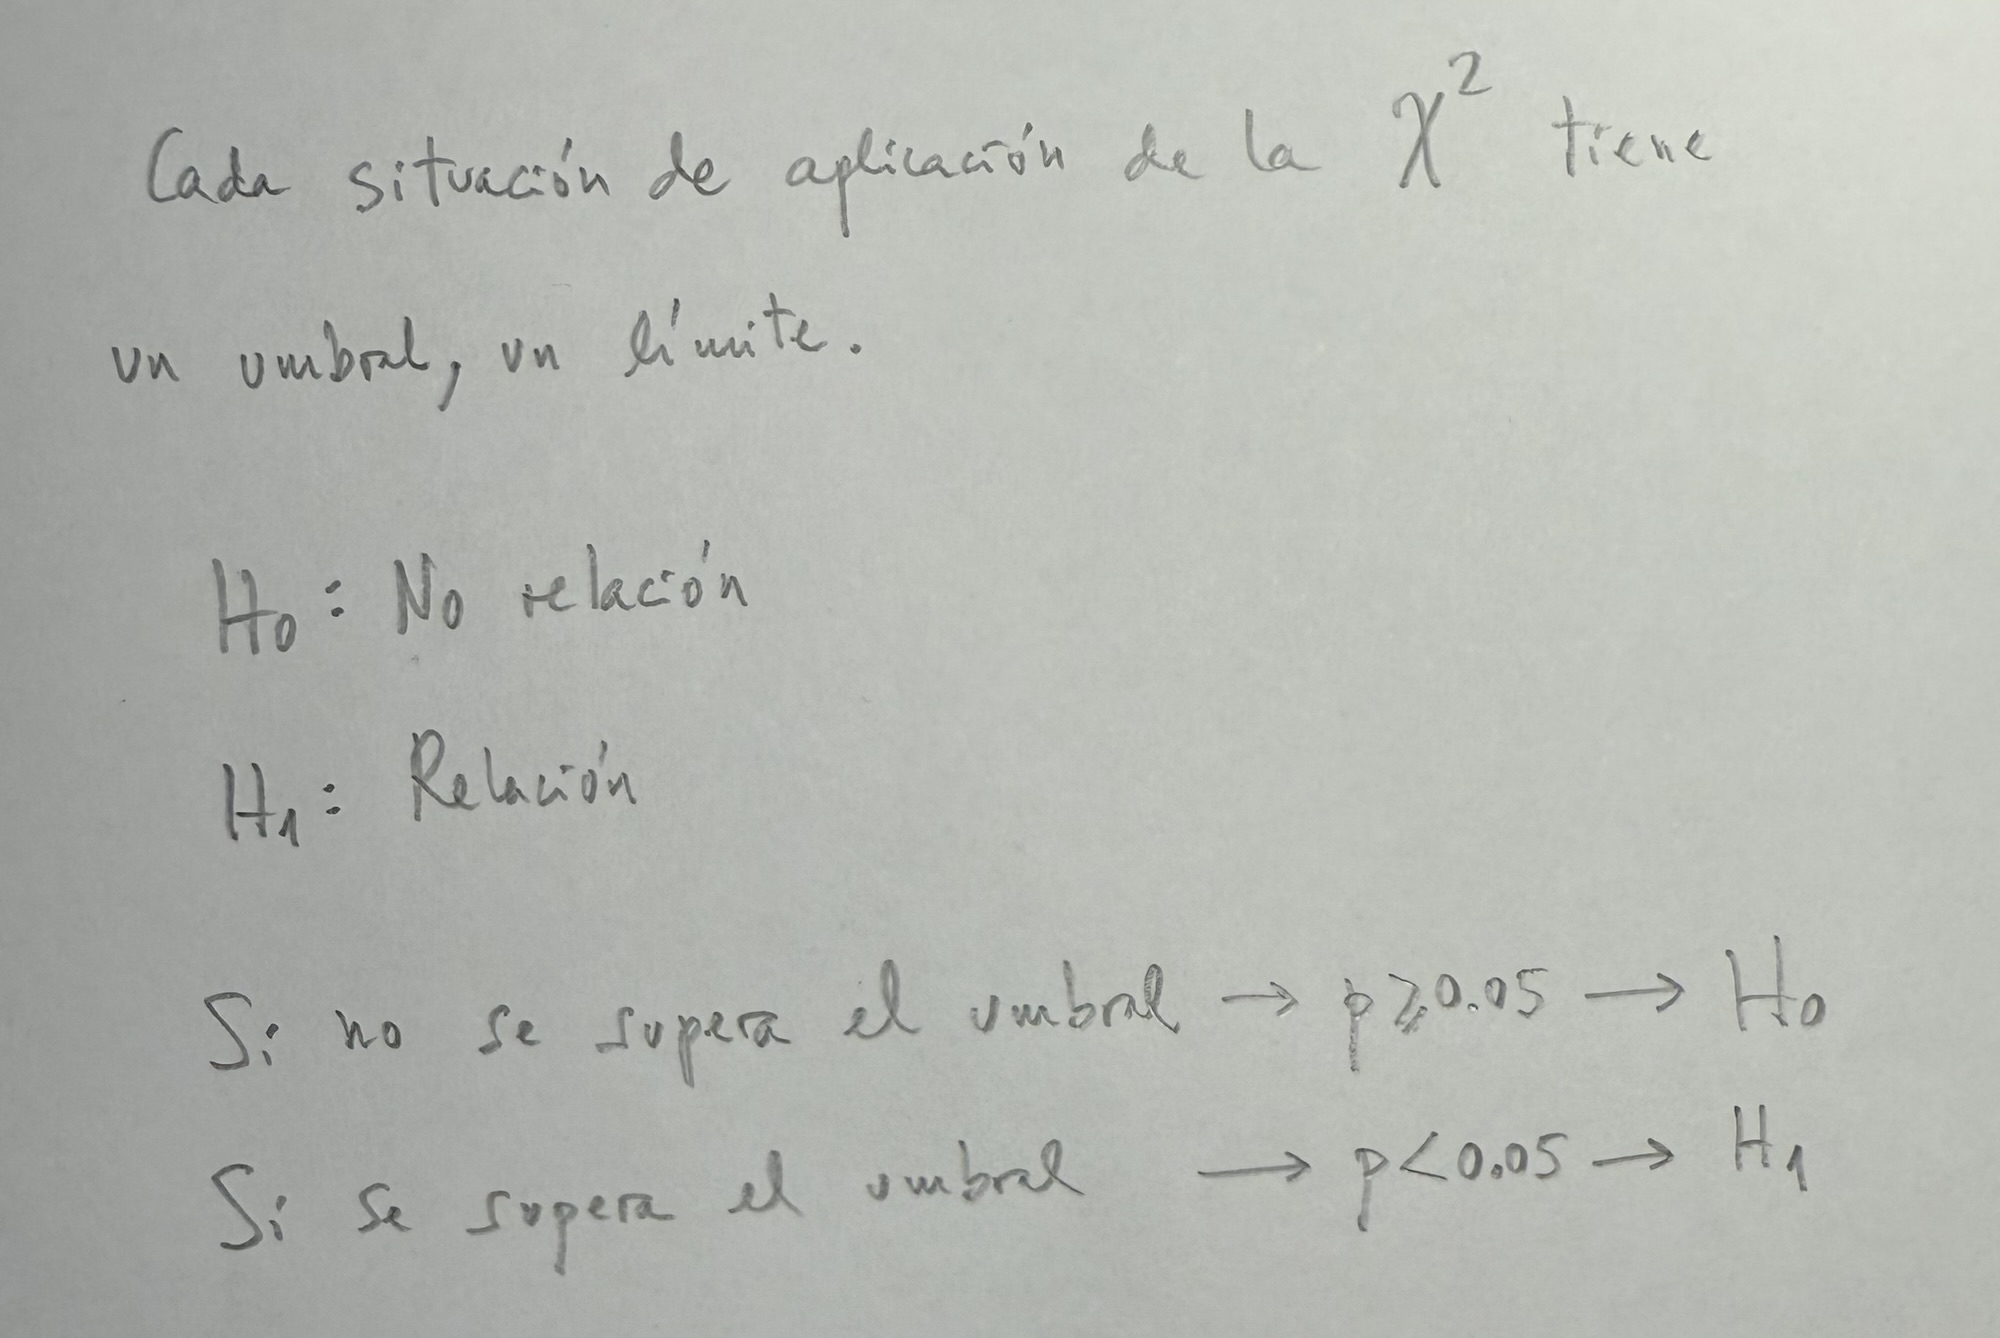 Cada situación de aplicación de la χ² tiene
un umbral, un límite.
H₀: No relación
H₁: Relación
Si no se supera el umbral → p≥0.05 → H₀
Si se supera el umbral → p<0.05 → H₁